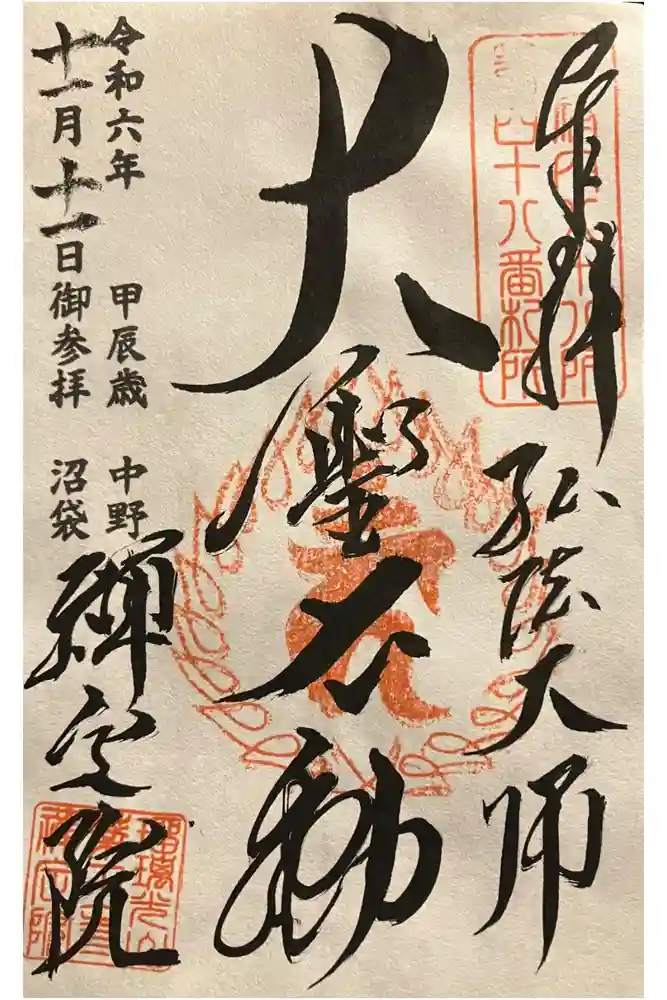 奉拝
弘法大師
四十八番札所
大聖不動
令和六年 甲辰歳 中野
十一月十一日御参拝 沼袋
禅定院